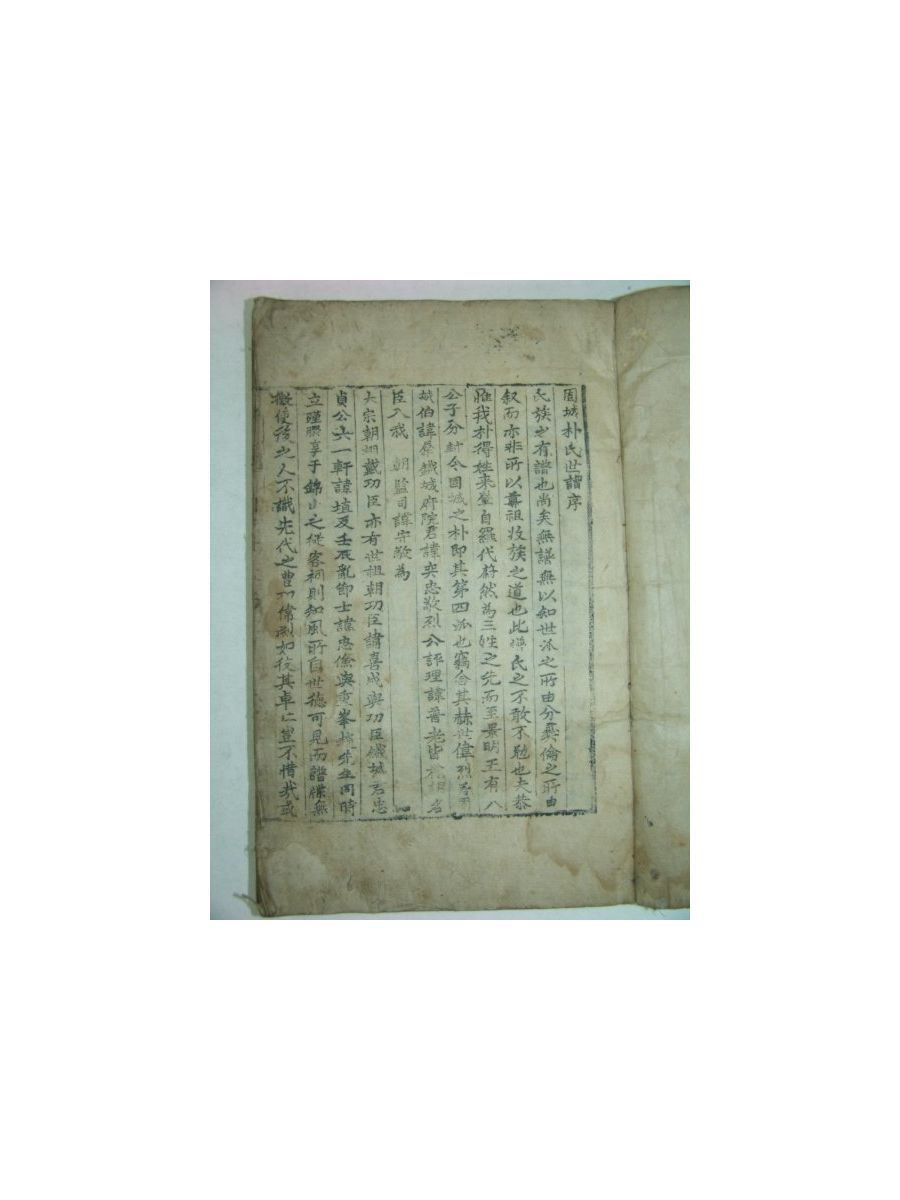 固城朴氏世譜序
氏族之有譜也尚矣無譜無以知世派之所由分彛倫之所由
叙而亦非所以尊祖收族之道也此譜氏之不敢不勉也夫恭
惟我朴得姓来肇自羅代蔚然為三姓之先而至景明王有八
公子分封令固城之朴即其第四派也竊念其赫世偉烈
城伯諱 鐵城府院君諱 忠敬烈公評理諱普老皆 名
臣入我 朝監司諱守敬為
大宗朝翊戴功臣亦有世祖朝功臣諱喜成與功臣鐵城君忠
貞公六一軒諱埴及壬辰亂節士諱忠儉與重峯 先生同時
立殣腏享于錦山之從容祠則知風所自世德可見而譜牒無
徵使後之人不識先代之 如彼其卓亡豈不惜哉或